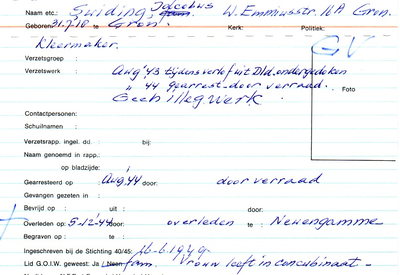 Jacobus
Naam etc.: Swiding, W. Emmiusstr. 16A Gron.
Geboren: 31.7.18 te Gron. Kerk: Politiek:
Kleermaker. GV
Verzetsgroep :
Verzetswerk : Aug '43 tijdens verlof uit Dld. ondergedoken
" 44 gearrest. door verraad. Foto
Geen illeg. werk.
Contactpersonen:
Schuilnamen :
Verzetsrapp. ingel. dd. : bij:
Naam genoemd in rapp.:
op bladzijde:
Gearresteerd op : Aug. '44 door: door verraad
Gevangen gezeten in :
Bevrijd op : uit : door:
Overleden op : 5-12-'44 door: overleden te Neuengamme
Begraven op : te :
Ingeschreven bij de Stichting 40/45: 16-6-1949
Lid G.O.I.W. geweest: Ja / Neen fam. Vrouw leeft in concubinaat -